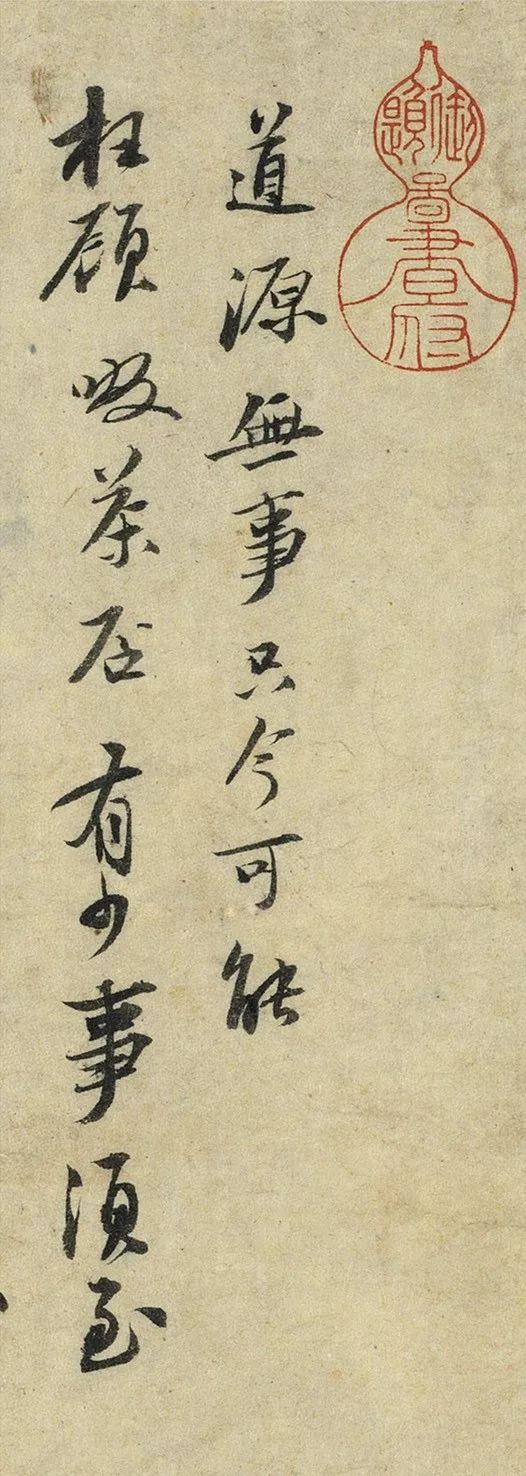 道源無事只今可能
枉顧啜茶否有少事須至